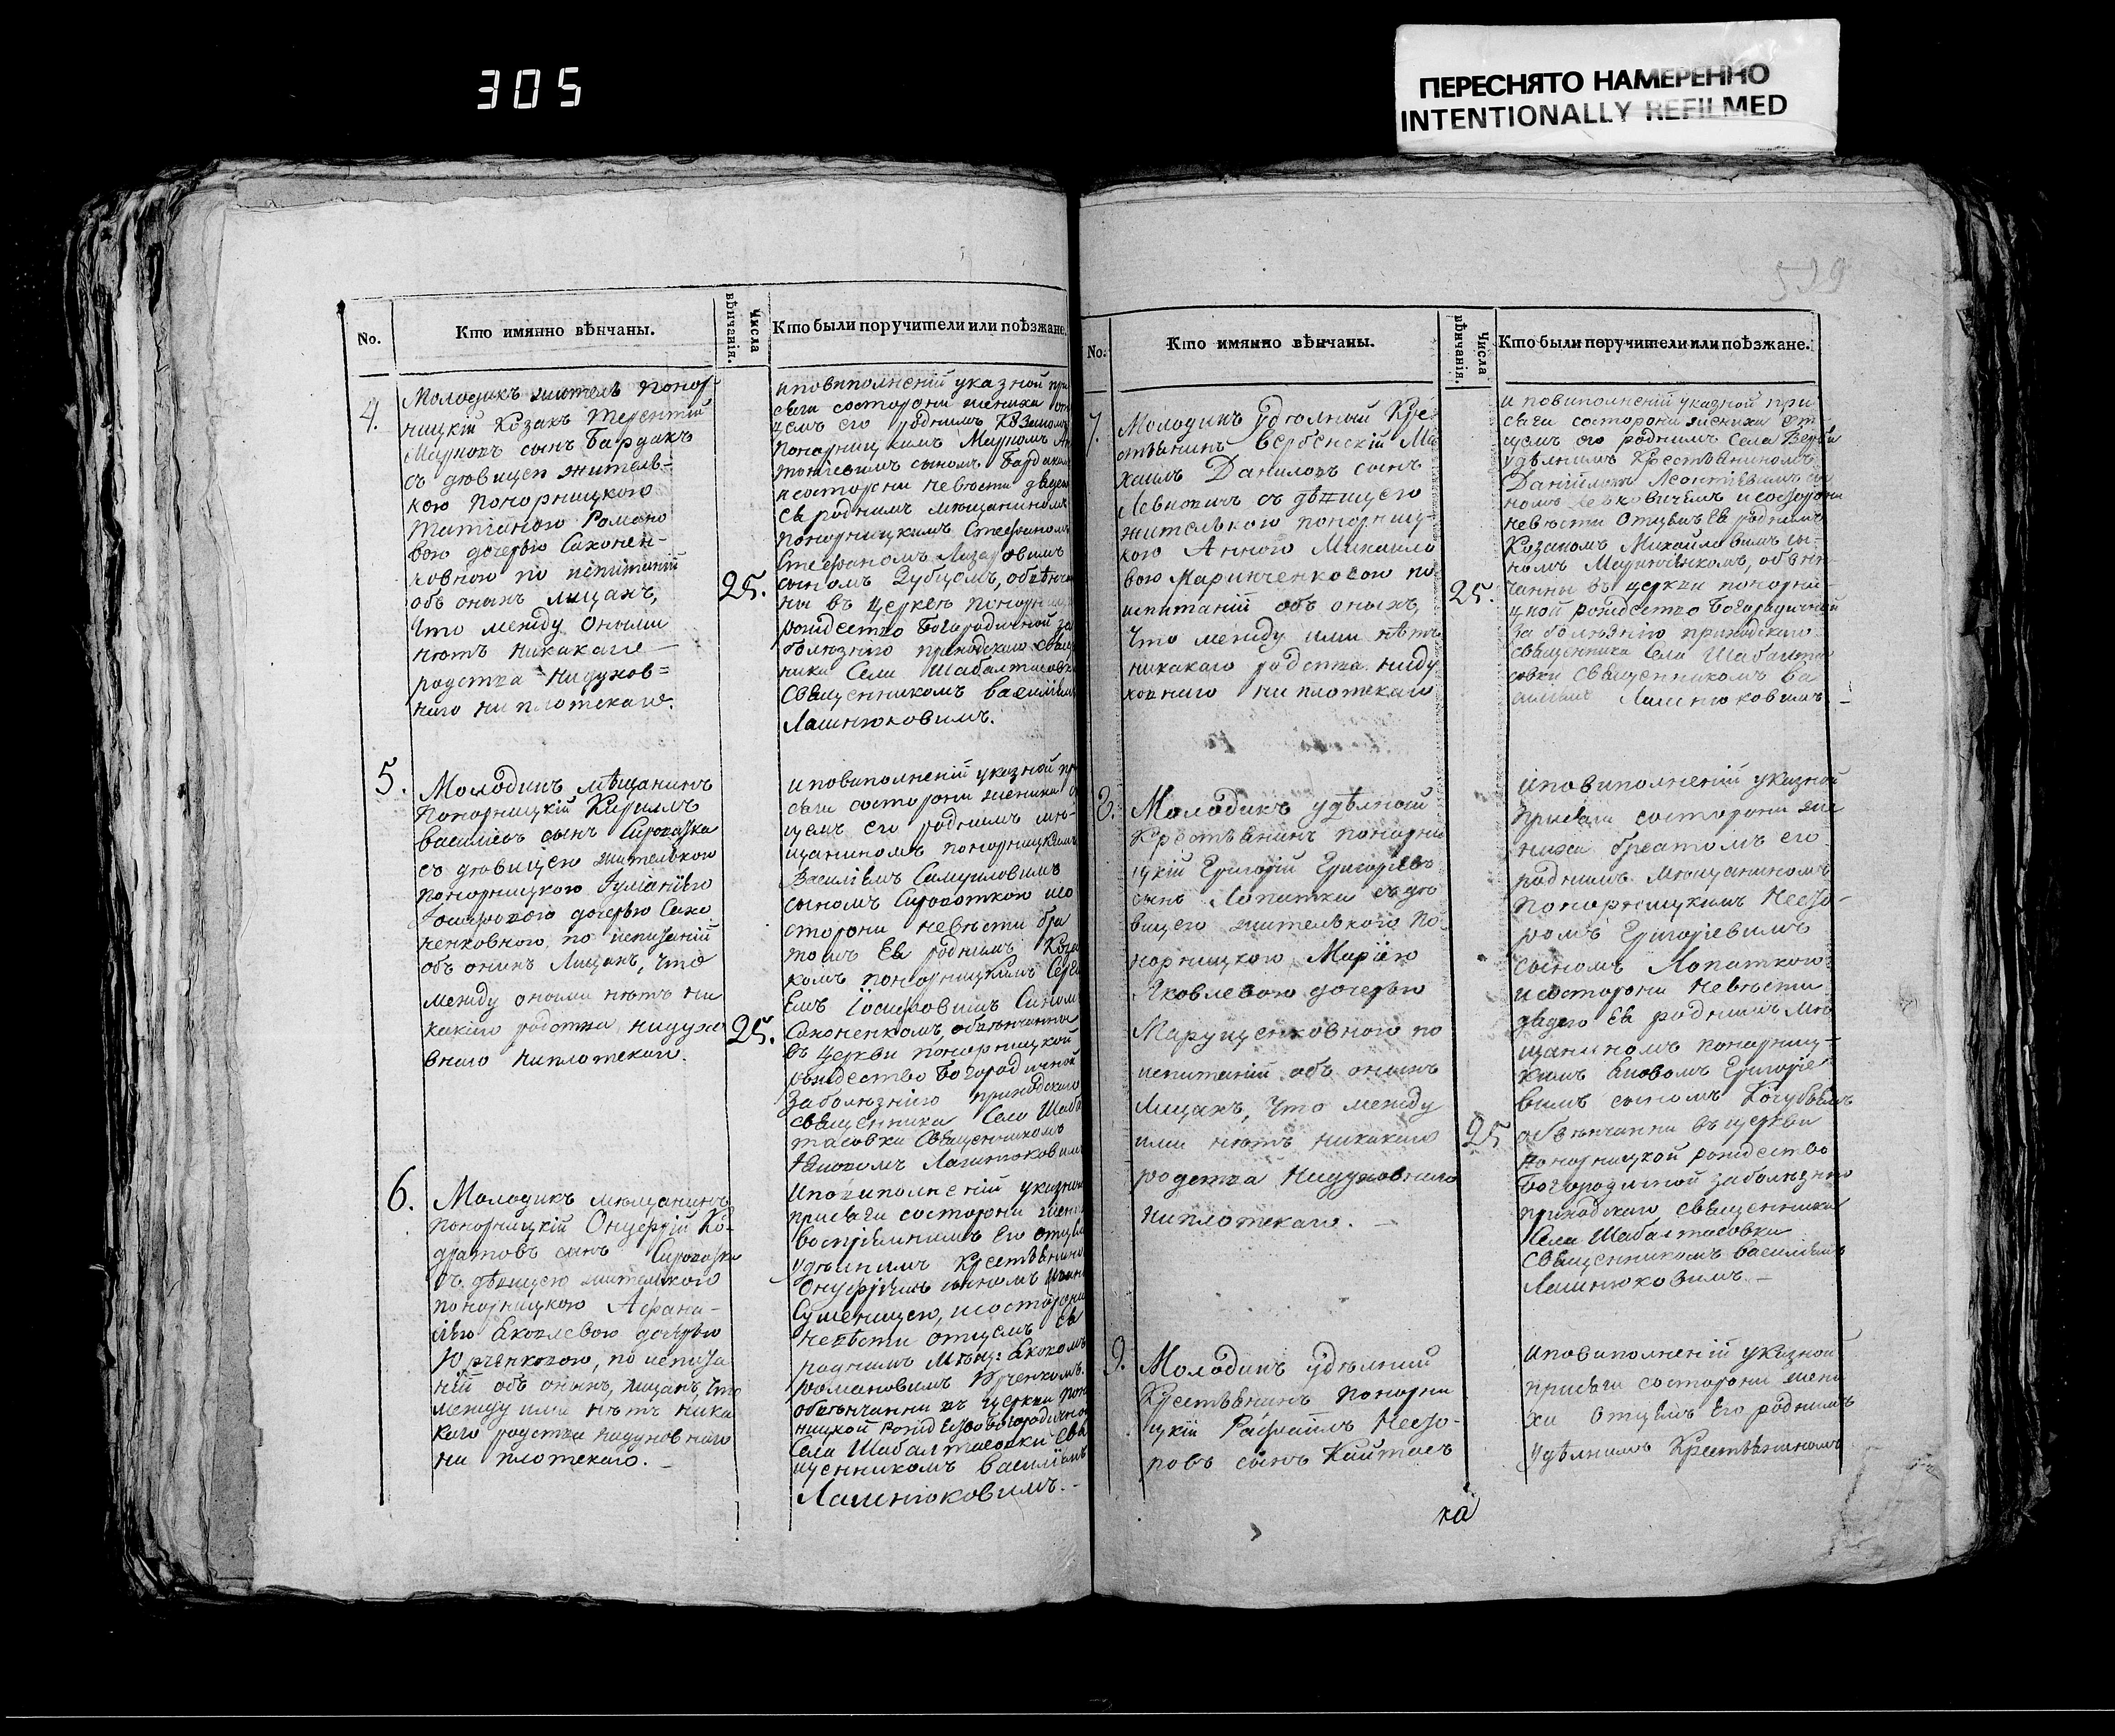 305
ПЕРЕСНЯТО НАМЕРЕННО
INTENTIONALLY REFILMED
No.
Кто имянно вѣнчаны.
Числа вѣнчанія.
Кто были поручители или поѣзжане.
4.
Молодикъ жителъ понор
ницкій Козакъ Терентій
Марковъ сынъ Бардакъ
съ дѣвицею жителъ-
кою понорницкого
Татіаною Романо
вою дочерью Сахонен-
ковною по испитаній
объ онихъ лицахъ,
что между оными
нѣтъ никакаго
родства нидухов=
наго ни плотскаго.
25.
и повиполненій указной при
сяги состорони жениха
цемъ его роднимъ Козакомъ
понорницкимъ Маркомъ
сыномъ Бардакомъ
и состорони невѣсти дядею
Ея роднимъ мѣщаниномъ
понорницкимъ Стефаномъ
Стефаномъ Лазаровимъ
сыномъ Зубцомъ, обвѣнча
ны въ церквѣ понорниц
рождество Богородичной за
болѣзнію приходскаго свящ
ника Села Шабалтасовки
Священникомъ Василіемъ
Лашнюковимъ.
5.
Молодикъ мѣщанинъ
понорницкій Кирилъ
василіевъ сынъ Сироватка
съ дѣвицею жителькою
понорницкою Іуліаніею
Іосифовою дочерью Сахо
ненковною, по испитаній
объ онихъ Лицахъ, что
между оными нѣтъ ни
какаго родства нидухо
внаго ниплотскаго.
25.
и повиполненій указной при
сяги состорони жениха
цемъ его роднимъ мѣ-
щаниномъ понорницкимъ
Василіемъ Самуиловимъ
сыномъ Сироваткою исо
сторони невѣсти бра
томъ Ея роднимъ Коза
комъ понорницкимъ Серге
Емъ Іосифовимъ Сином
Сахоненкомъ, обвѣнчанни
въ церкви понорницкой
рождество Богородичной
Заболѣзнію приходскаго
священника Села Шаба
тасовки Священникомъ
Лашнюковим
6.
Молодикъ мѣщанинъ
понорницкій Онуфрій Ко-
дратовъ сынъ Сироватка
съ дѣвицею жителькою
понорницкою Афана-
сіею Яковлевою дочерью
Юрченковою, по испита
ній объ онихъ, лицахъ, что
между ими нѣтъ ника
каго родства нидуховнаго
ни плотскаго.
Иповиполненій указной
присяги состорони жени
воспріемнимъ Его отцем
удѣлнимъ Крестьянино
Онуфріемъ сыномъ
Сушеницею, исосторони
невѣсти отцемъ Ея
роднимъ Мѣщ: Яковомъ
Романовимъ Юрченкомъ
обвѣнчанни въ церкви пон
ницкой Рождество Богородично
Села Шабалтасовки Свя
щенникомъ василіемъ
Лашнюковимъ.
No.
Кто имянно вѣнчаны.
Числа вѣнчанія.
Кто были поручители или поѣзжане.
7.
Молодикъ Удѣлный Кре
стьянинъ вербенскій Ми
хаилъ Даниловъ сынъ
Левковичъ съ дѣвицею
жителькою понорниц-
кою Анною Михаило
вою Маринченковою по
испитаній объ онихъ,
что между ими нѣтъ
никакаго родства ниду
ховнаго ни плотскаго
25.
и повиполненій указной при
сяги состорони жениха от
цемъ его роднимъ села Верби
удѣлнимъ Крестьяниномъ
Даниломъ Леонтіевимъ си
номъ Левковичемъ и состорони
невѣсти Отцемъ Ея роднимъ
Козакомъ Михайловимъ си-
номъ Маринченкомъ, обвѣн-
чанни въ церкви понорни-
цкой рождество Богородичной
За болѣзнію приходскаго
священника села Шабалта
совки Священникомъ Ва
силіемъ Лашнюковимъ
8.
Молодикъ удѣлной
Крестьянинъ понорни
цкій Григорій Григоріевъ
сынъ Лопатка съ дѣ
вицею жителькою по
норницкою Маріею
Яковлевою дочерью
Марущенковною по
испитаній объ онихъ
Лицахъ, что между
ими нѣтъ никакаго
родства Нидуховнаго
ниплотскаго.
25
Иповиполненій указной
присяги состорони же
ниха братомъ его
роднимъ Мѣщаниномъ
понорницкимъ Несто-
ромъ Григоріевимъ
сыномъ Лопаткою
и состорони Невѣсти
дядею Ея роднимъ мѣ
щаниномъ понорниц-
кимъ Яковомъ Григоріе
вимъ сыномъ
обвѣнчанни въ церкви
понорницкой рождество
Богородичной заболѣзнію
приходскаго священника
Села Шабалтасовки
Священникомъ василіемъ
Лашнюковимъ.
9.
Молодикъ удѣлний
Крестьянинъ понорни
цкій Рафаилъ Несто-
ровъ сынъ Кийтасъ
Иповиполненій указной
присяги состорони жени
ха Отцемъ Его роднимъ
Удѣлнимъ Крестьяниномъ